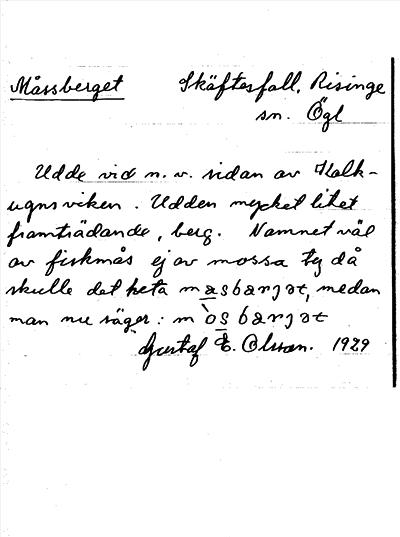 Måssberget Skäftesfall, Risinge
sn. Ögl
Udde vid n.v. sidan av Kalk-
ugnsviken. Udden mycket litet
framträdande, berg. Namnet väl
av fiskmås ej av mossa ty då
skulle det heta masbærjət, medan
man nu säger: mòsbærjət
Gustaf E. Olsson. 1929